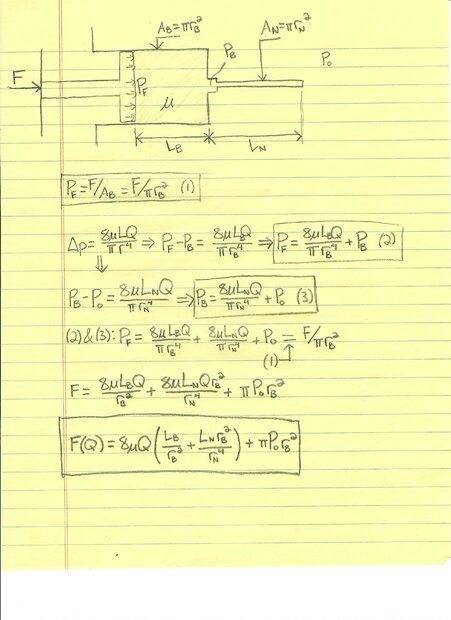 A_B=πr_B²
A_N=πr_N²
P_B
P_0
F
P_F
μ
L_B
L_N
P_F=F/A_B=F/πr_B² (1)
Δp=8μLQ/πr⁴ ⇒ P_F-P_B=8μL_BQ/πr_B⁴ ⇒ P_F=8μL_BQ/πr_B⁴+P_B (2)
P_B-P_0=8μL_NQ/πr_N⁴ ⇒ P_B=8μL_NQ/πr_N⁴+P_0 (3)
(2)&(3): P_F=8μL_BQ/πr_B⁴+8μL_NQ/πr_N⁴+P_0=F/πr_B²
(1)
F=8μL_BQ/r_B²+8μL_NQr_B²/r_N⁴+πP_0r_B²
F(Q)=8μQ(L_B/r_B²+L_Nr_B²/r_N⁴)+πP_0r_B²